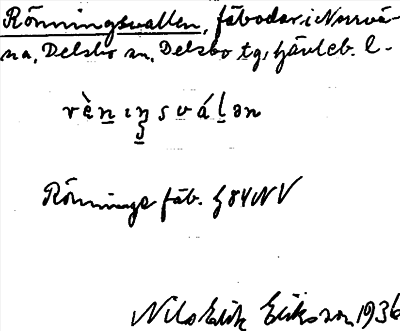 Rönningsvallen, fäbodar i Norrvä-
na, Delsbo sn, Delsbo tg, Gävleb. l.
rèn ıŋsválən
Rönnings fäb. G 84 NV
Nils Erik Eriksson 1936